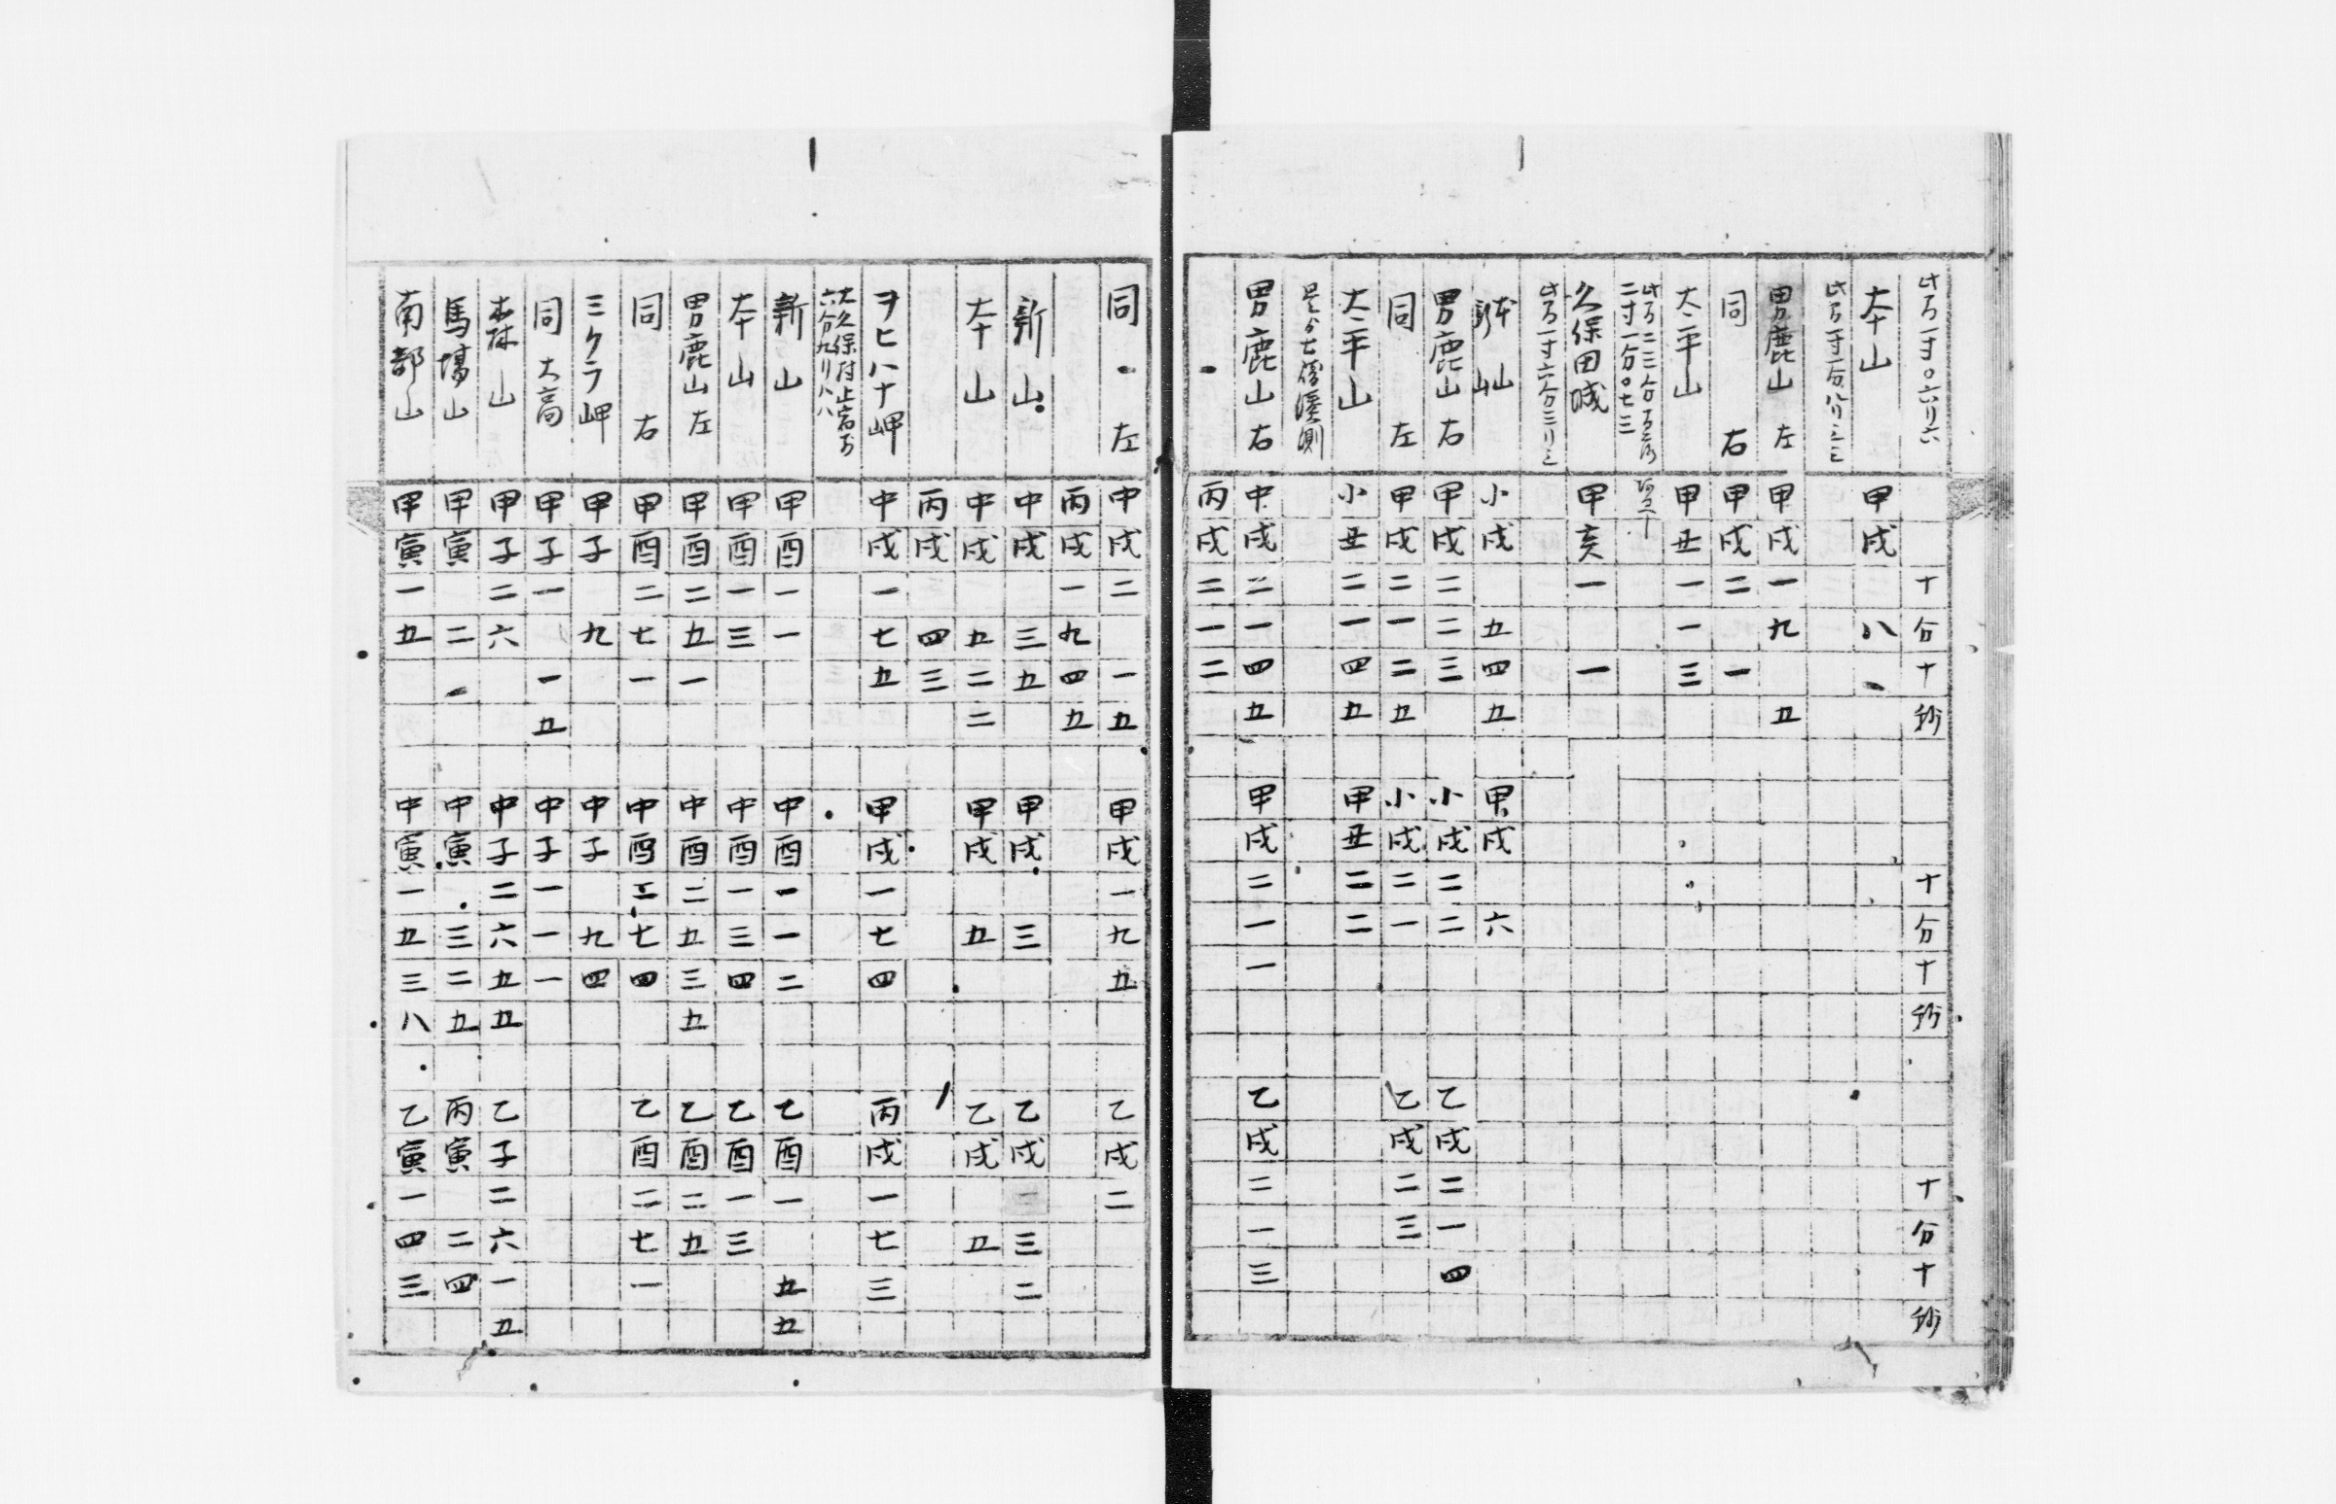 此方一寸〇六リ六　十分十秒　十分十秒　十分十秒
本山　甲戌　八
此方一寸一分八リ三三
男鹿山左　甲戌一九　五
同　右　甲戌二　一
太平山　甲丑一一三
二寸一分〇七三
久保田城　甲亥一　一
此方一寸六分三リ三
小戌　五四五　甲戌　六
男鹿山右　甲戌二二三　小戌二二　乙戌二一四
同　左　甲戌二一二五　小戌二一　乙戌二三
太平山　小丑二一四五　甲丑二二
男鹿山右　中戌二一四五　甲戌二一一　乙戌二一三
丙戌二一二
同　左　中戌二　一五　甲戌一九五　乙戌二
丙戌一九四五
新山　中戌　三五　甲戌　三　乙戌　三二
本山　中戌　五二二　甲戌　五　乙戌　五
丙戌　四三
ヲヒハナ岬　中戌一七五　甲戌一七四　丙戌一七三
大久保村止宿
六分九リ八八
新山　甲酉一一　中酉一一二　乙酉一　五五
本山　甲酉一三　中酉一三四　乙酉一三
男鹿山左　甲酉二五一　中酉二五三五　乙酉二五
同　右　甲酉二七一　中酉二七四　乙酉二七一
三クラ岬　甲子　九　中子　九四
同　大高　甲子一　一五　中子一一一
森山　甲子二六　中子二六五五　乙子二六一五
馬場山　甲寅　二　中寅　三二五　丙寅　二四
南部山　甲寅一五　中寅一五三八　乙寅一四三